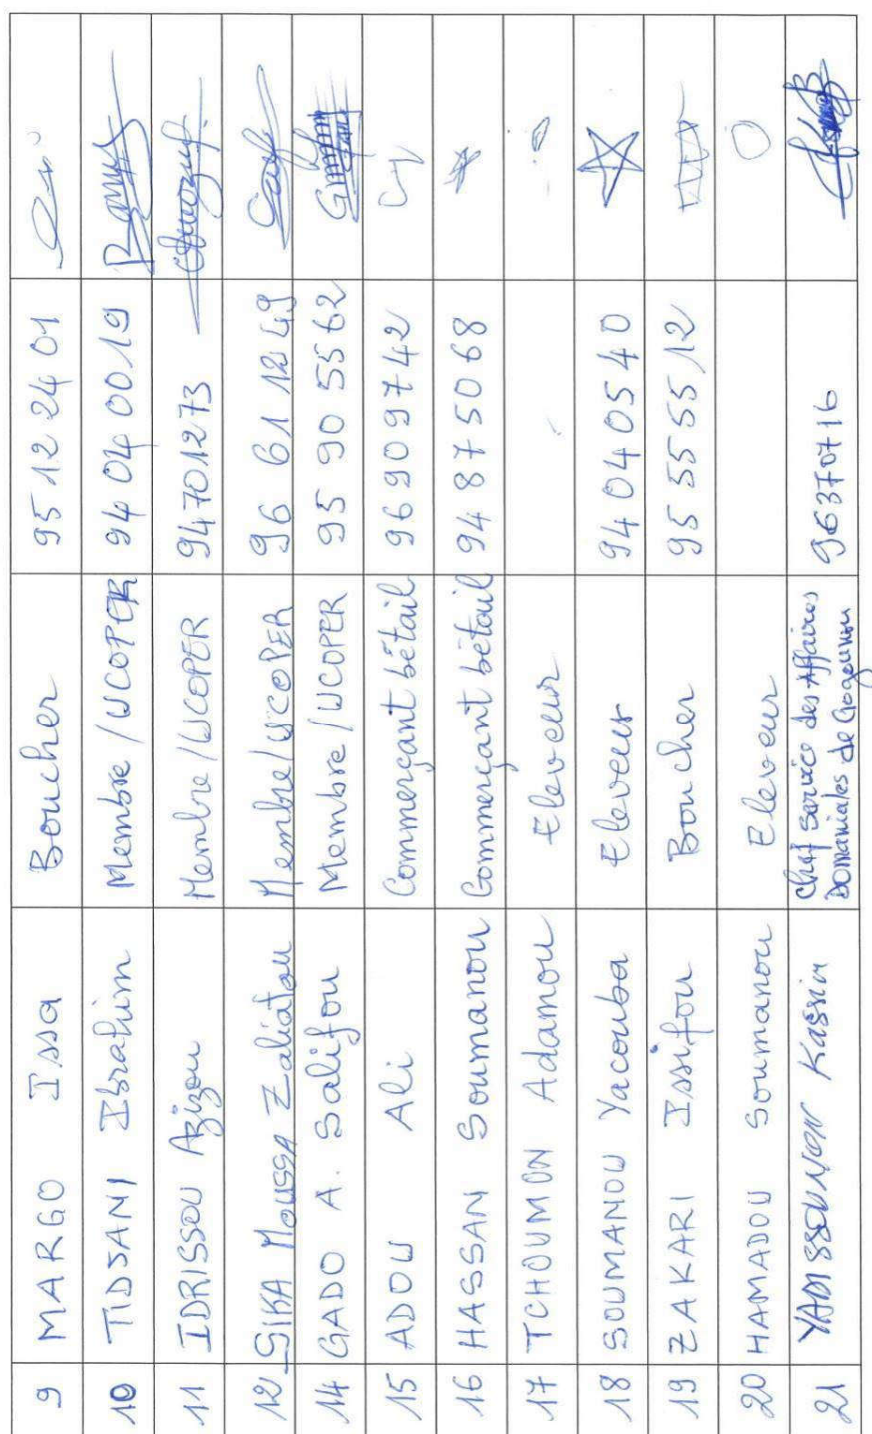 9 MARGO Issa Boucher 95 12 24 01
10 TIDJANI Ibrahim Membre/UCOPER 94 04 00 19
11 IDRISSOU Azizou Membre/UCOPER 94701273
12 SIKA Moussa Zaliatou Membre/UCOPER 96 61 12 49
14 GADO A. Salifou Membre/UCOPER 95 90 55 62
15 ADOU Ali Commerçant bétail 96909742
16 HASSAN Soumanou Commerçant bétail 94875068
17 TCHOUMON Adamou Eleveur
18 SOUMANOU Yacouba Eleveur 94040540
19 ZAKARI Issifou Boucher 95 55 55 12
20 HAMADOU Soumanou Eleveur
21 Kassim Chef Service des Affaires
Domaniales de Gogounou 96370716